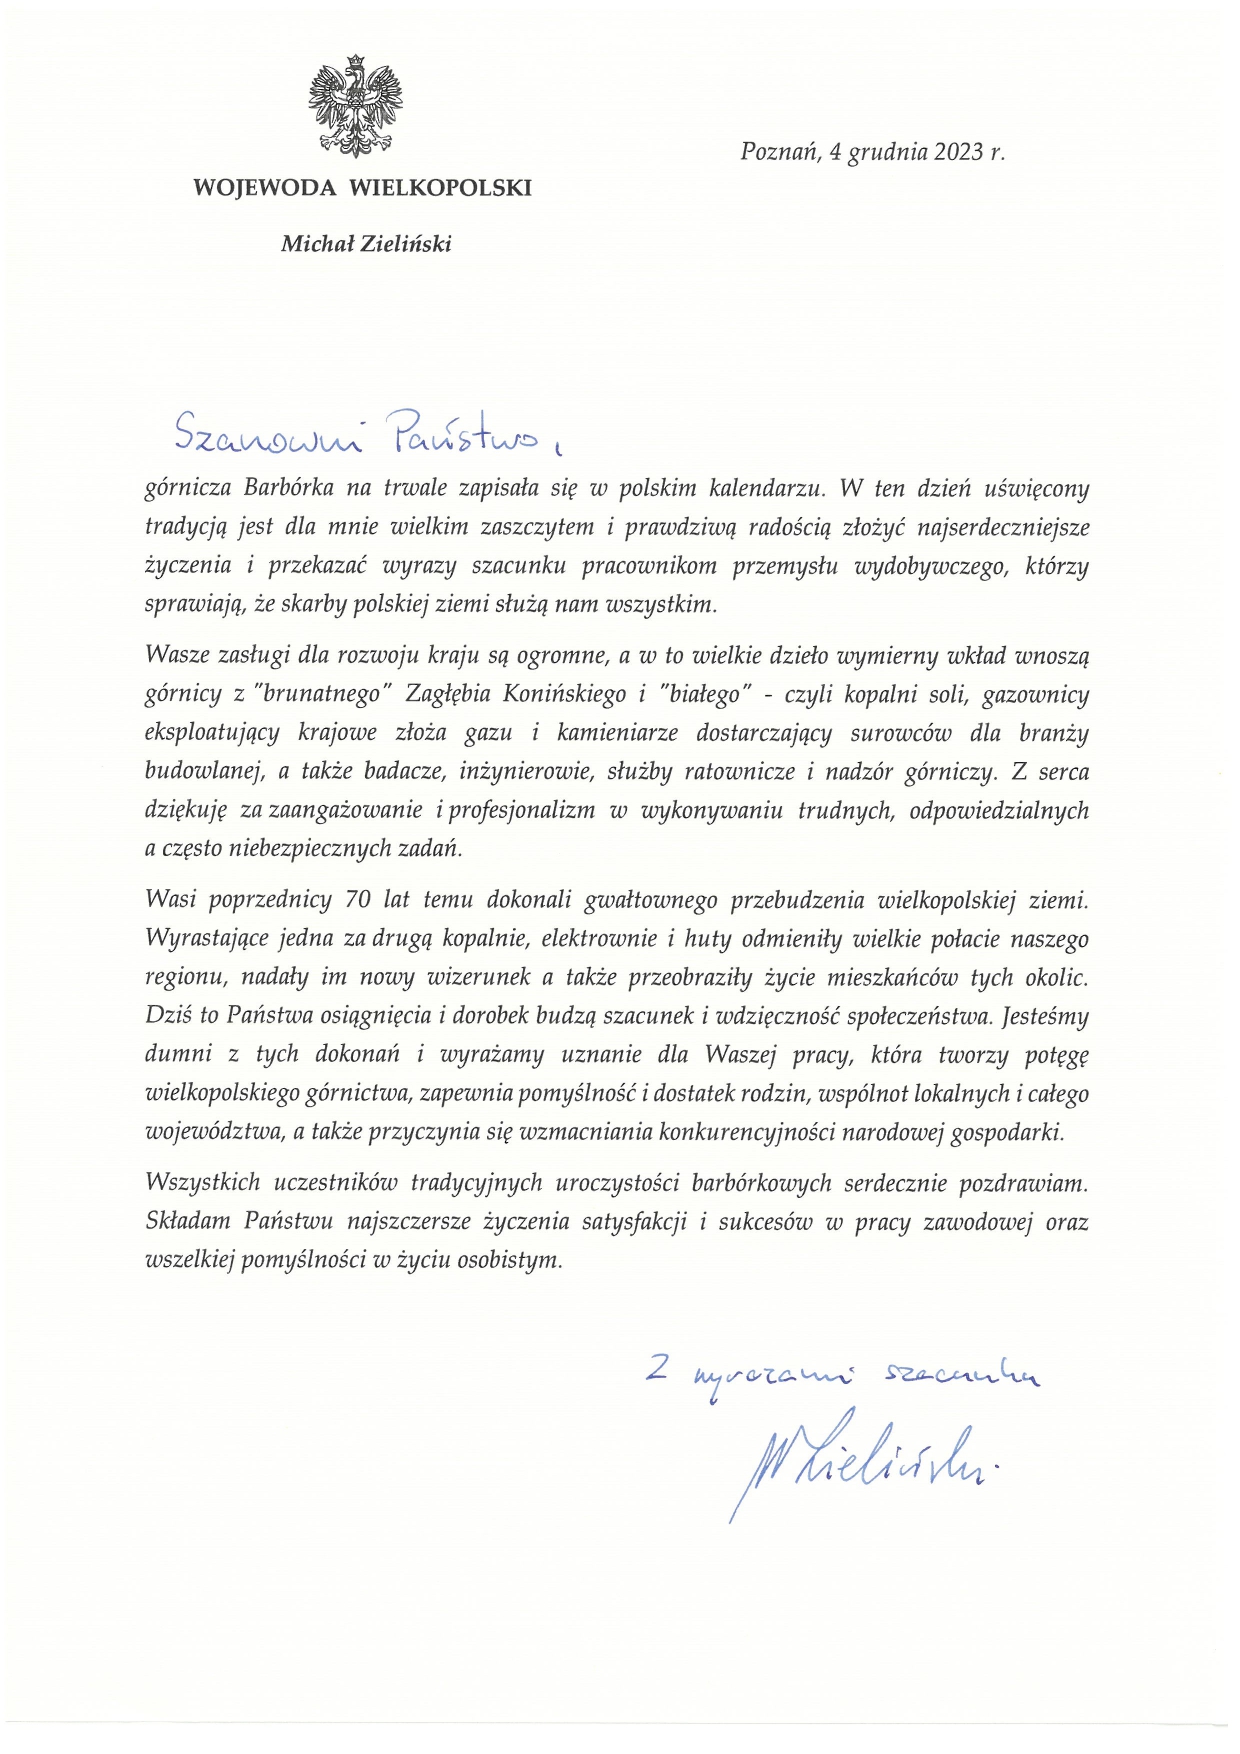 Poznań, 4 grudnia 2023 r.
WOJEWODA WIELKOPOLSKI
Michał Zieliński
Szanowni Państwo,
górnicza Barbórka na trwale zapisała się w polskim kalendarzu. W ten dzień uświęcony
tradycją jest dla mnie wielkim zaszczytem i prawdziwą radością złożyć najserdeczniejsze
życzenia i przekazać wyrazy szacunku pracownikom przemysłu wydobywczego, którzy
sprawiają, że skarby polskiej ziemi służą nam wszystkim.
Wasze zasługi dla rozwoju kraju są ogromne, a w to wielkie dzieło wymierny wkład wnoszą
górnicy z "brunatnego" Zagłębia Konińskiego i "białego" - czyli kopalni soli, gazownicy
eksploatujący krajowe złoża gazu i kamieniarze dostarczający surowców dla branży
budowlanej, a także badacze, inżynierowie, służby ratownicze i nadzór górniczy. Z serca
dziękuję za zaangażowanie i profesjonalizm w wykonywaniu trudnych, odpowiedzialnych
a często niebezpiecznych zadań.
Wasi poprzednicy 70 lat temu dokonali gwałtownego przebudzenia wielkopolskiej ziemi.
Wyrastające jedna za drugą kopalnie, elektrownie i huty odmieniły wielkie połacie naszego
regionu, nadały im nowy wizerunek a także przeobraziły życie mieszkańców tych okolic.
Dziś to Państwa osiągnięcia i dorobek budzą szacunek i wdzięczność społeczeństwa. Jesteśmy
dumni z tych dokonań i wyrażamy uznanie dla Waszej pracy, która tworzy potęgę
wielkopolskiego górnictwa, zapewnia pomyślność i dostatek rodzin, wspólnot lokalnych i całego
województwa, a także przyczynia się wzmacniania konkurencyjności narodowej gospodarki.
Wszystkich uczestników tradycyjnych uroczystości barbórkowych serdecznie pozdrawiam.
Składam Państwu najszczersze życzenia satysfakcji i sukcesów w pracy zawodowej oraz
wszelkiej pomyślności w życiu osobistym.
Z wyrazami szacunku
M Zieliński